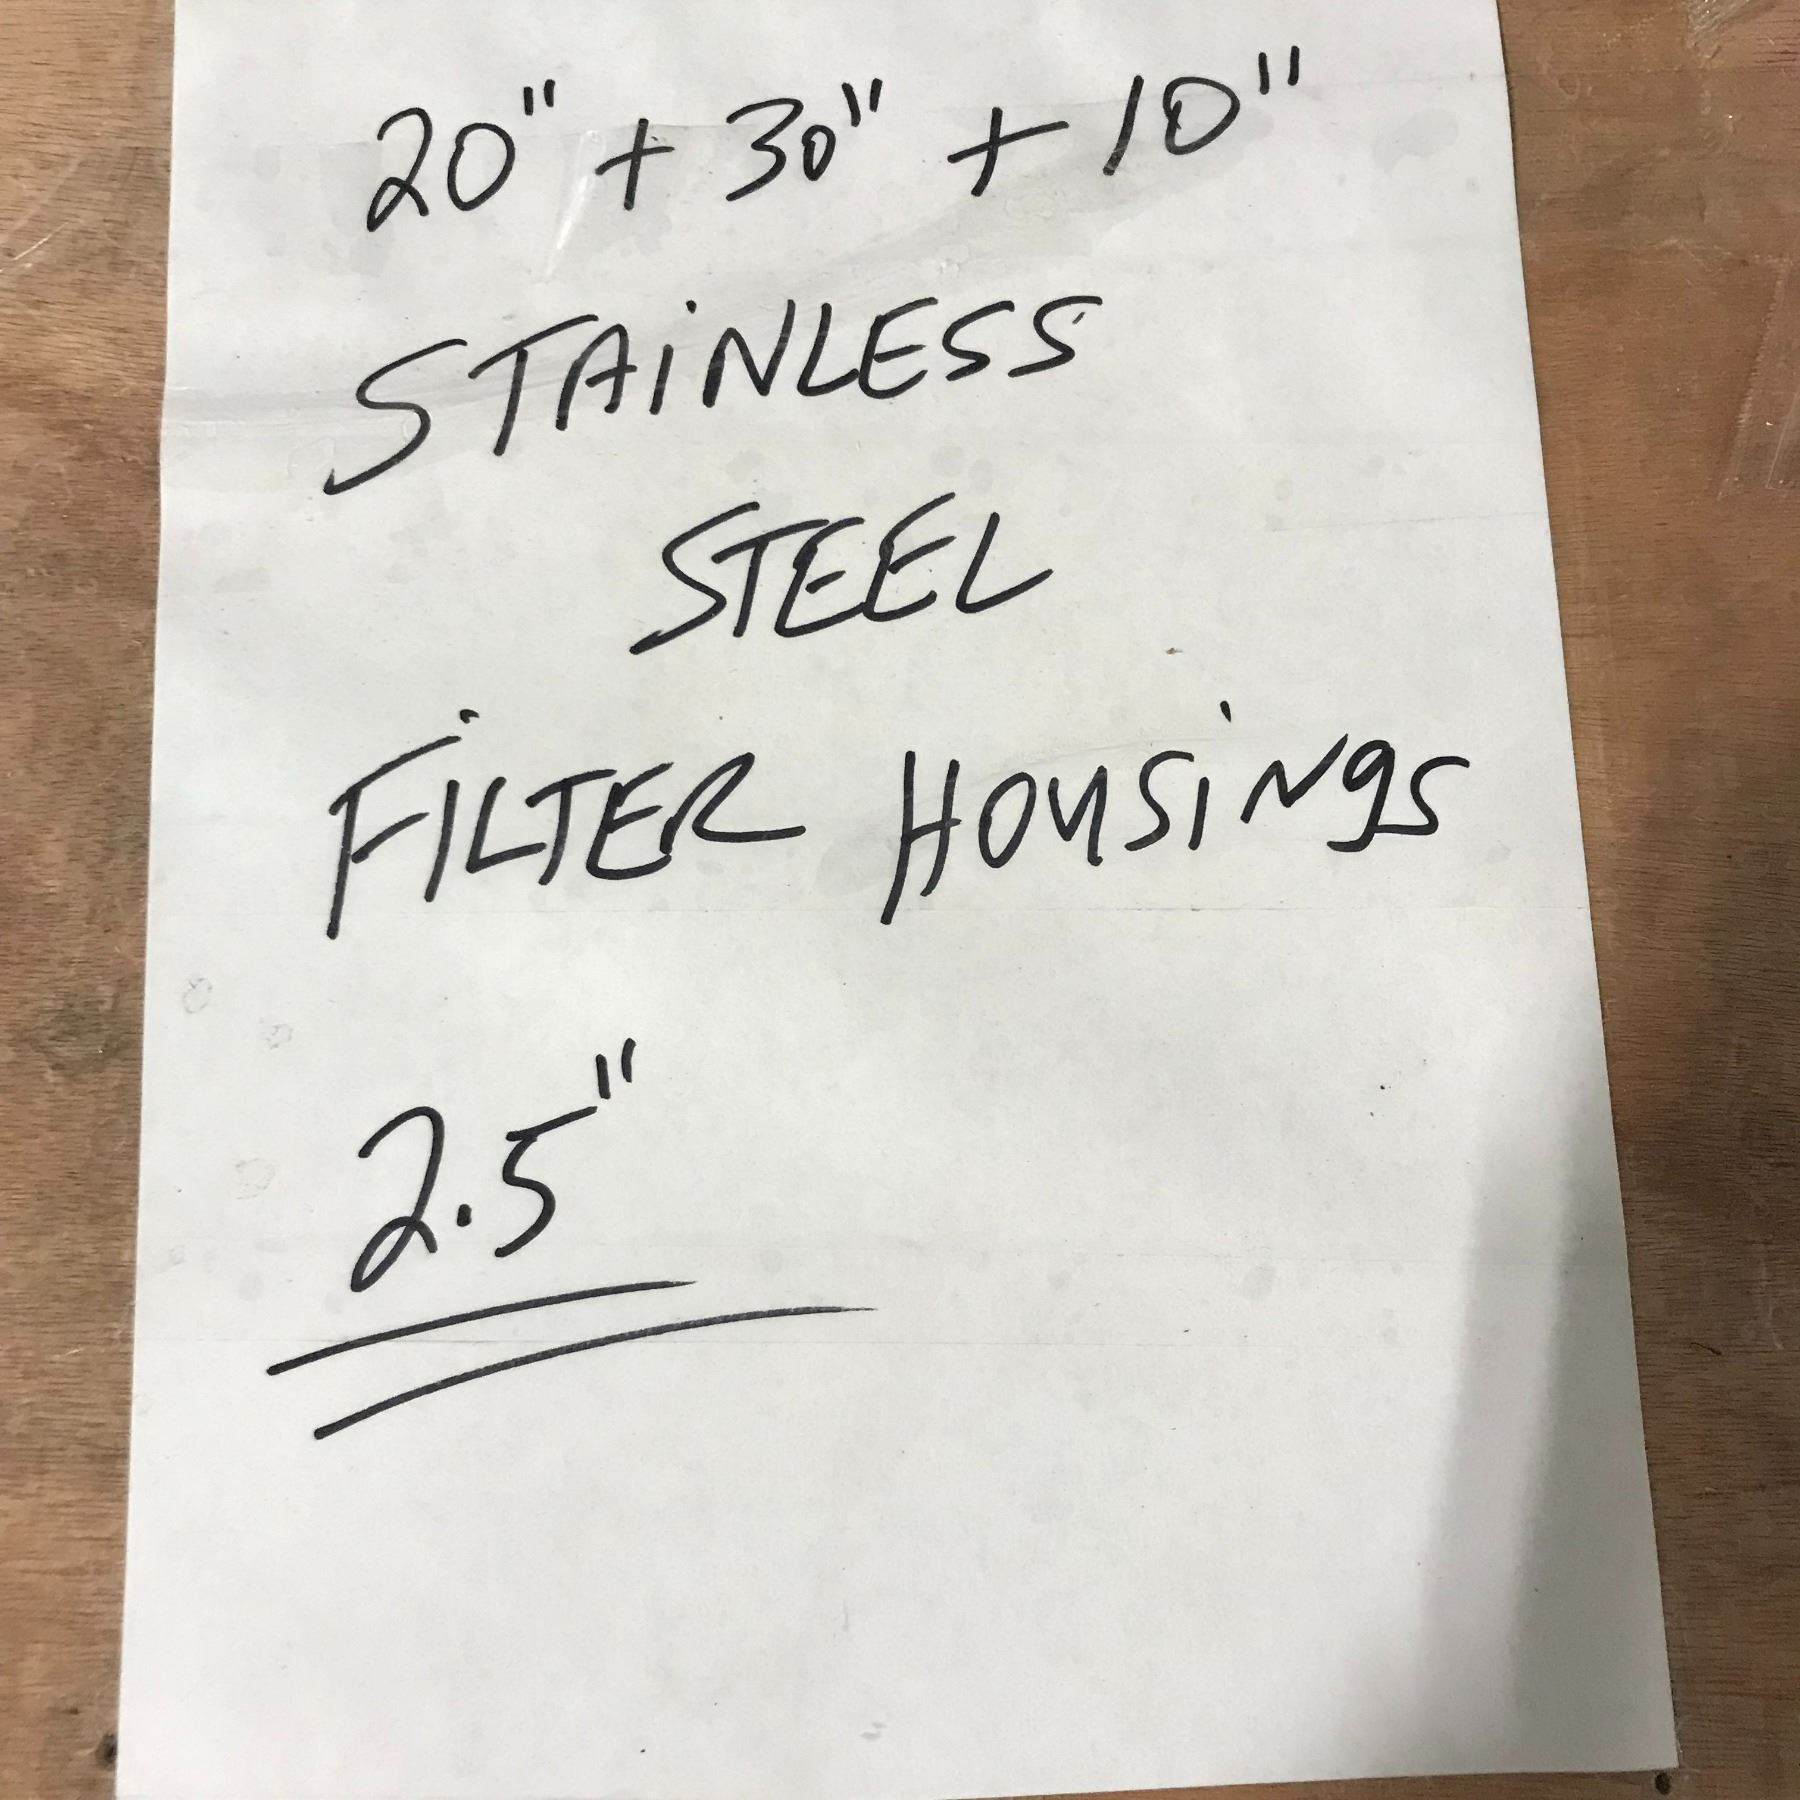 20" + 30" + 10"
STAiNLESS
STEEL
FiLTER HOUSiNgS
2.5"